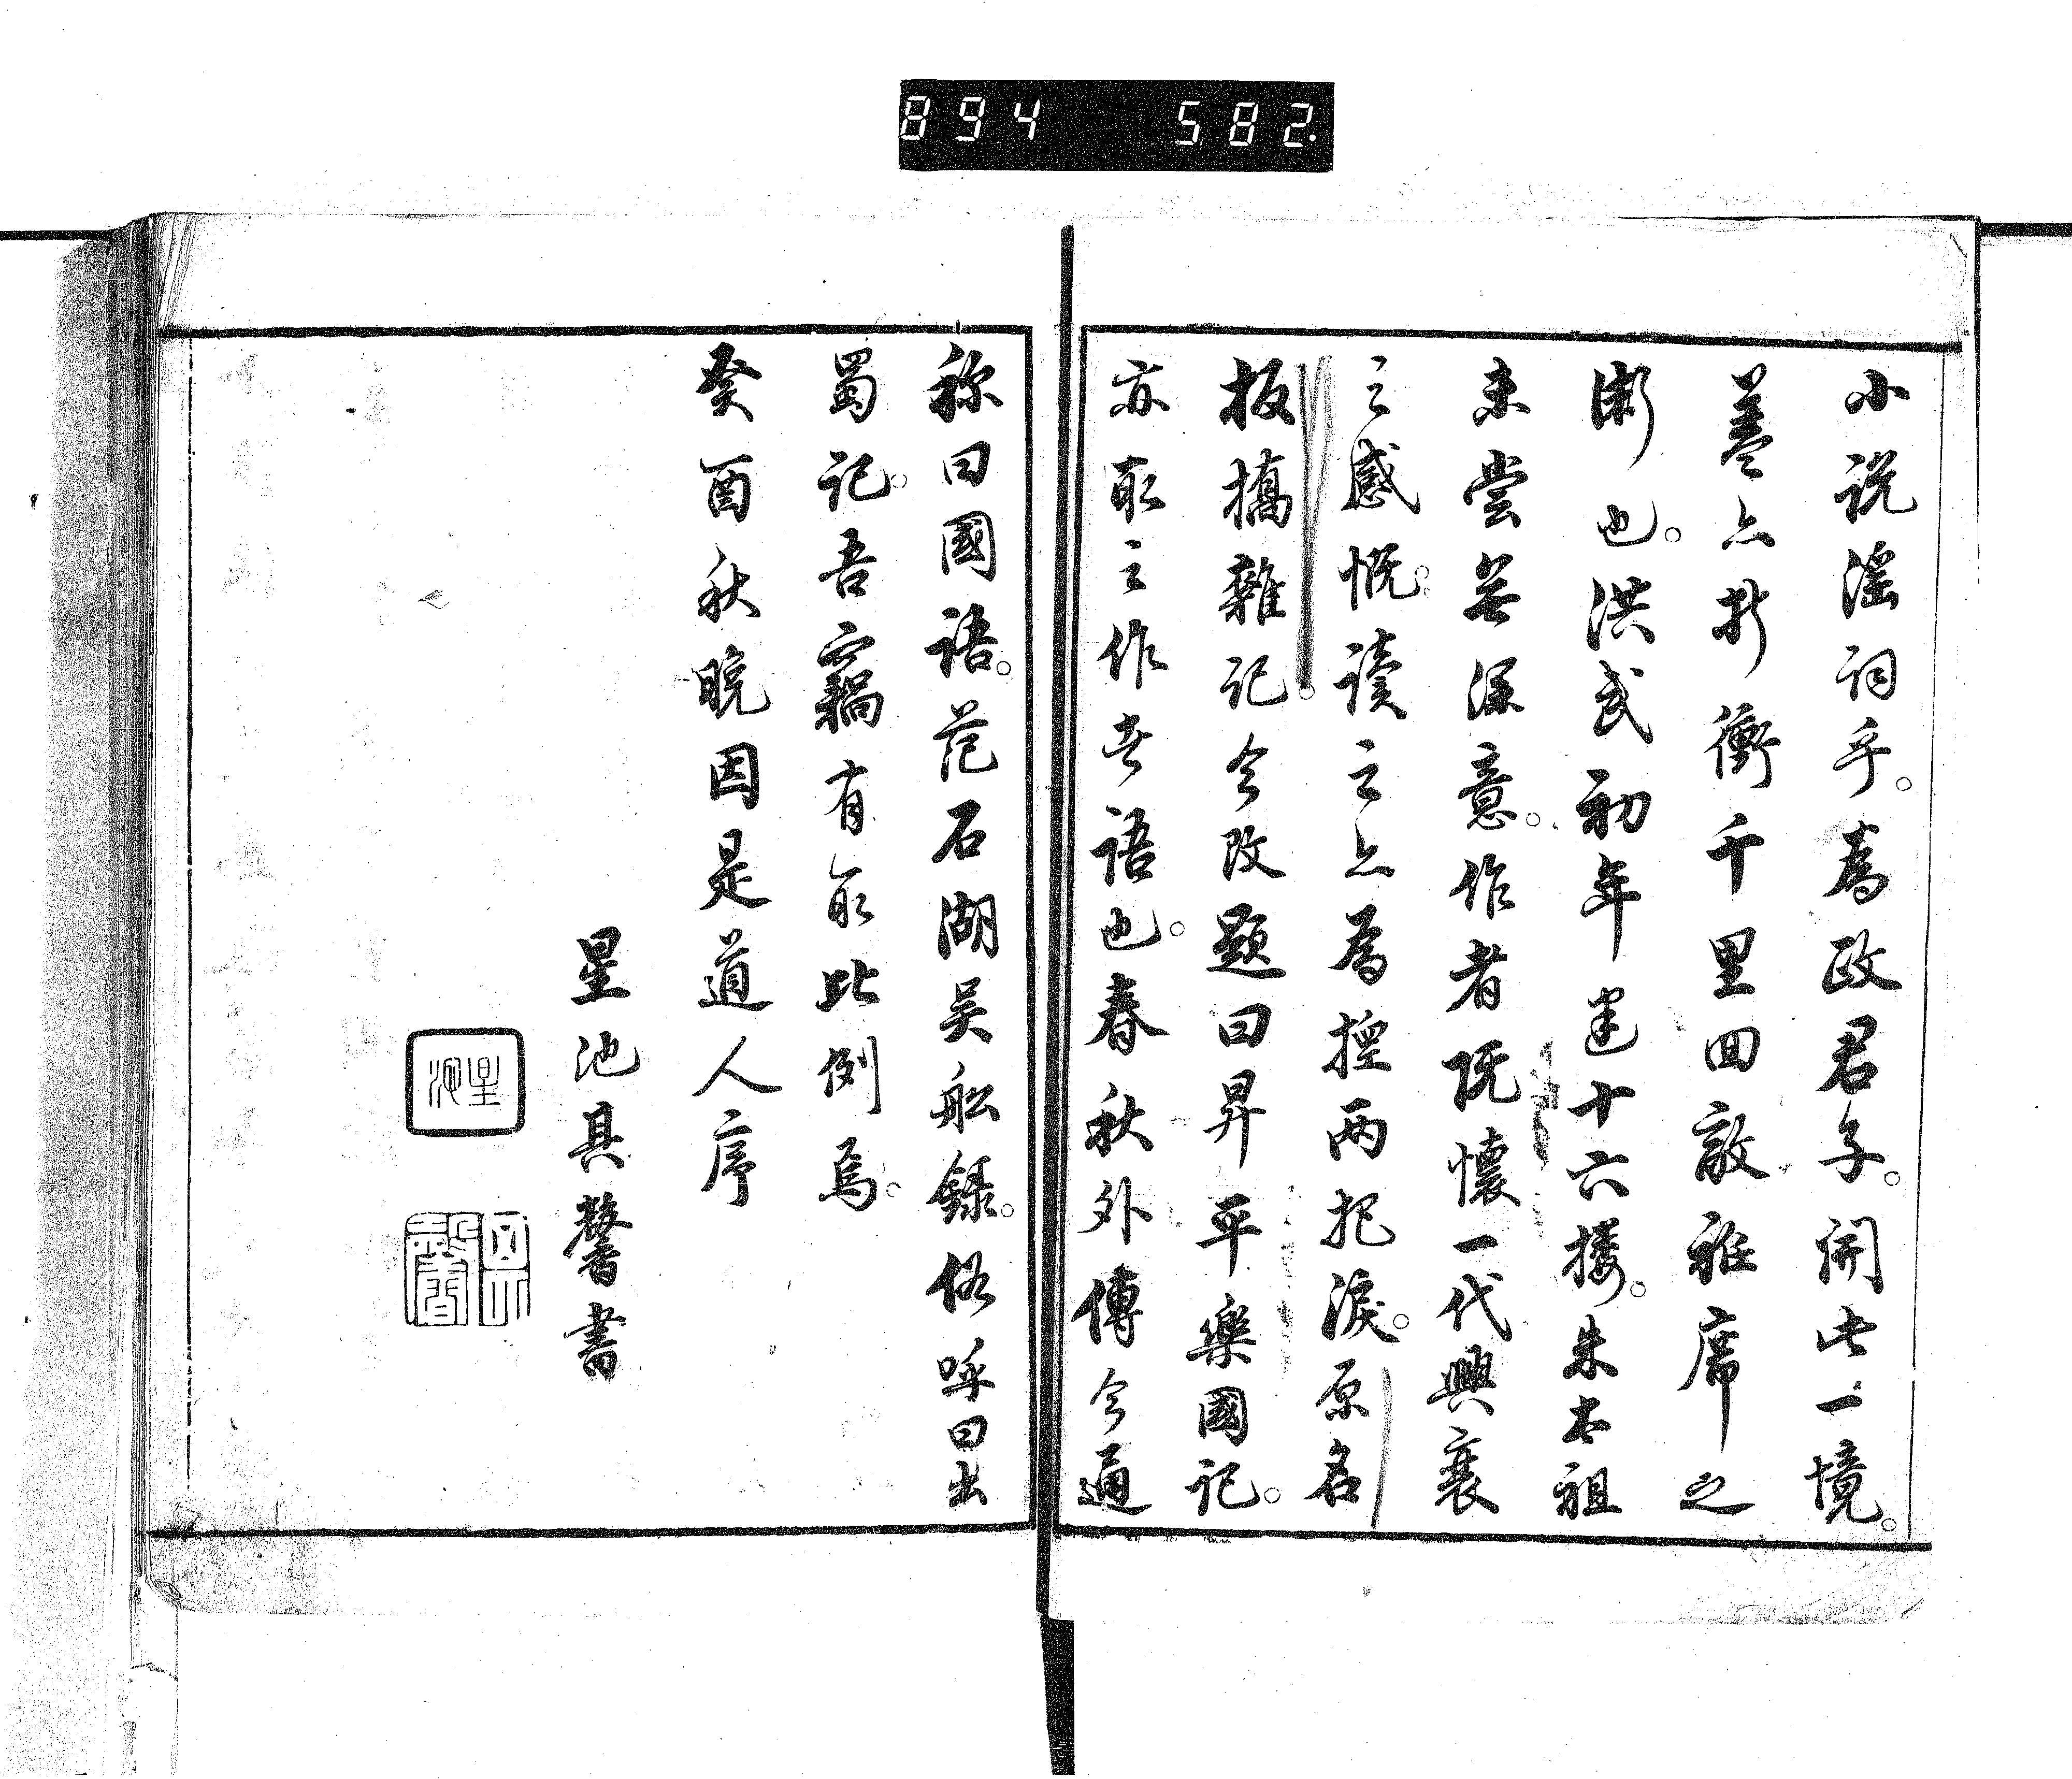 894 582.
小說滛詞乎。為政君子。開此一境。
蓋亦折衝千里回敵雅席之
術也。洪武初年建十六樓。朱太祖
未嘗無深意。作者既懷一代興衰
之感慨。讀之亦為搵兩把淚。原名
板橋雜記。今改題曰昇平樂國記。
亦取之作者語也。春秋外傳今通
稱曰國語。范石湖吳船錄。俗呼曰出
蜀記。吾竊有取此例焉。
癸酉秋晚因是道人序
星池其馨書
星池
其馨